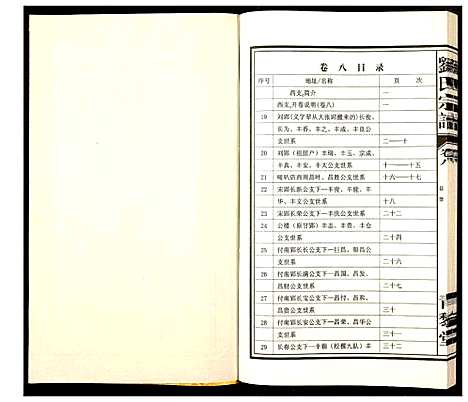 劉氏宗譜
卷八
卷八目录
序号 地址/名称 页次
西支,简介 一
西支,开卷说明(卷八) 一
19 刘郢(义字辈从大张郢搬来的)长俊、
长为、丰乔、丰之、丰成、丰良公
支世系 二一十
20 刘郢（祖居户）丰瑞、丰玉、宗成、
丰真、丰安、丰太公支世系 十一一十五
21 喇叭店西周昌时、昌胜公支世系 十六一十七
22 宋郢长新公支下一丰俊、丰轮、丰
华、丰文公支世系 十八
23 宋郢长荣公支下一丰庆公支世系 二十二
24 公楼（原甘郢）丰志、丰贵、丰仓
公支世系 二十四
25 付南郢长长公支下一巨昌、朝昌公
支世系 二十六
26 付南郢长满公支下一昌国、昌发、
昌财公支世系 二十七
27 付南郢长宝公支下一昌付、昌教、
昌贵公支世系 三十
28 付南郢长安公支下一昌荣、昌华公
支世系 三十一
29 长春公支下一丰聊（校棚九队）丰 三十二